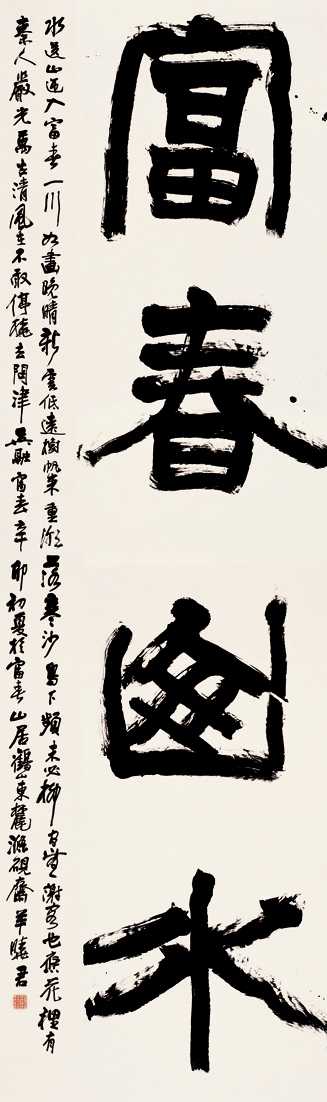 富春水
水送山迎入富春一川如畫晚晴新雲低遠樹帆來重潮落寒沙鳥下頻未必柳間無謝客也應花裡有
秦人嚴光萬古清風在不敢停橈去問津吳融富春辛卯初夏於富春山居鸛山東麓滌硯齋華君